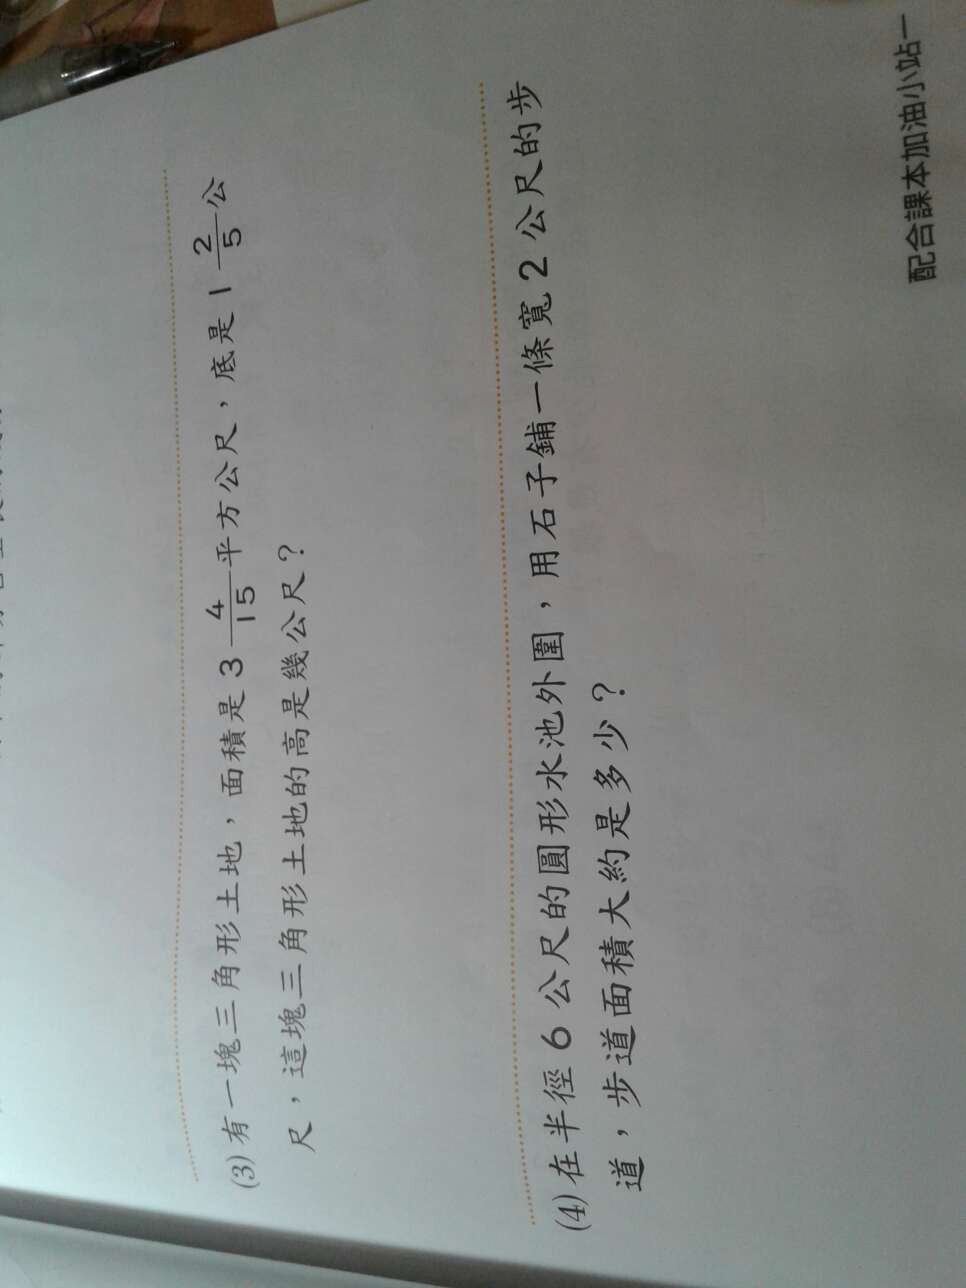 (3) 有一塊三角形土地，面積是 3 4/15 平方公尺，底是 1 2/5 公
尺，這塊三角形土地的高是幾公尺？
(4) 在半徑 6 公尺的圓形水池外圍，用石子鋪一條寬 2 公尺的步
道，步道面積大約是多少？
配合課本加油小站一